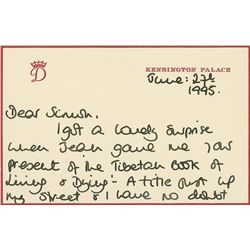 D
KENSINGTON PALACE
June: 27th
1995.
Dear Simon.
I got a lovely surprise
when Jean gave me your
present of the Tibetan Book of
Living & Dying - A title just up
my street & I have no doubt